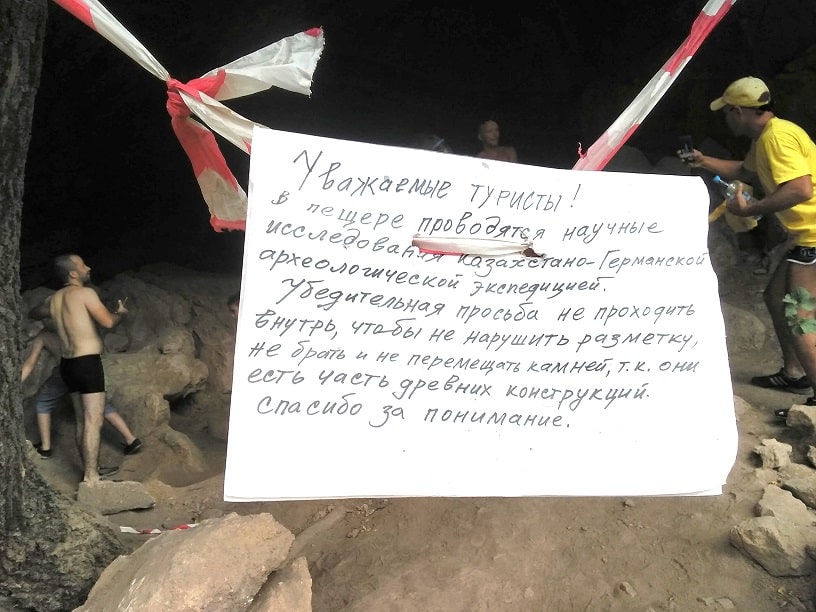 Уважаемые туристы!
в пещере проводятся научные
исследования казахстано-Германской
археологической экспедицией.
Убедительная просьба не проходить
внутрь, чтобы не нарушить разметку,
не брать и не перемещать камней, т.к. они
есть часть древних конструкций.
Спасибо за понимание.